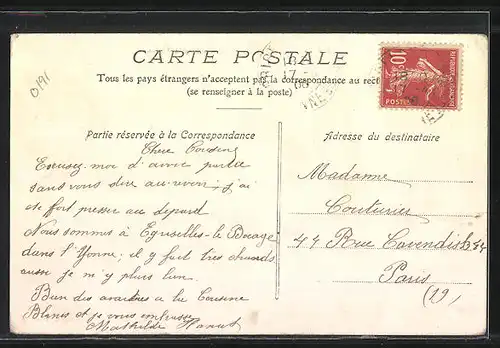 0191
CARTE POSTALE
Tous les pays étrangers n'acceptent pas la correspondance au recto
(se renseigner à la poste)
10
REPUBLIQUE FRANÇAISE
POSTES
Partie réservée à la Correspondance
Adresse du destinataire
Chere Cousine
Excusez-moi d'avoir partie
sans vous dire au revoir; j'ai
ete fort presser au depard
Nous sommes à Egriselles-le Bocage
dans l'Yonne; il y fait tres chauds
aussi je ny plus
Bien des a la Cousine
Blanc et je vous embrasse
Mathilde
Madame
Couturier
49 Rue Cavendish
Paris
(19)